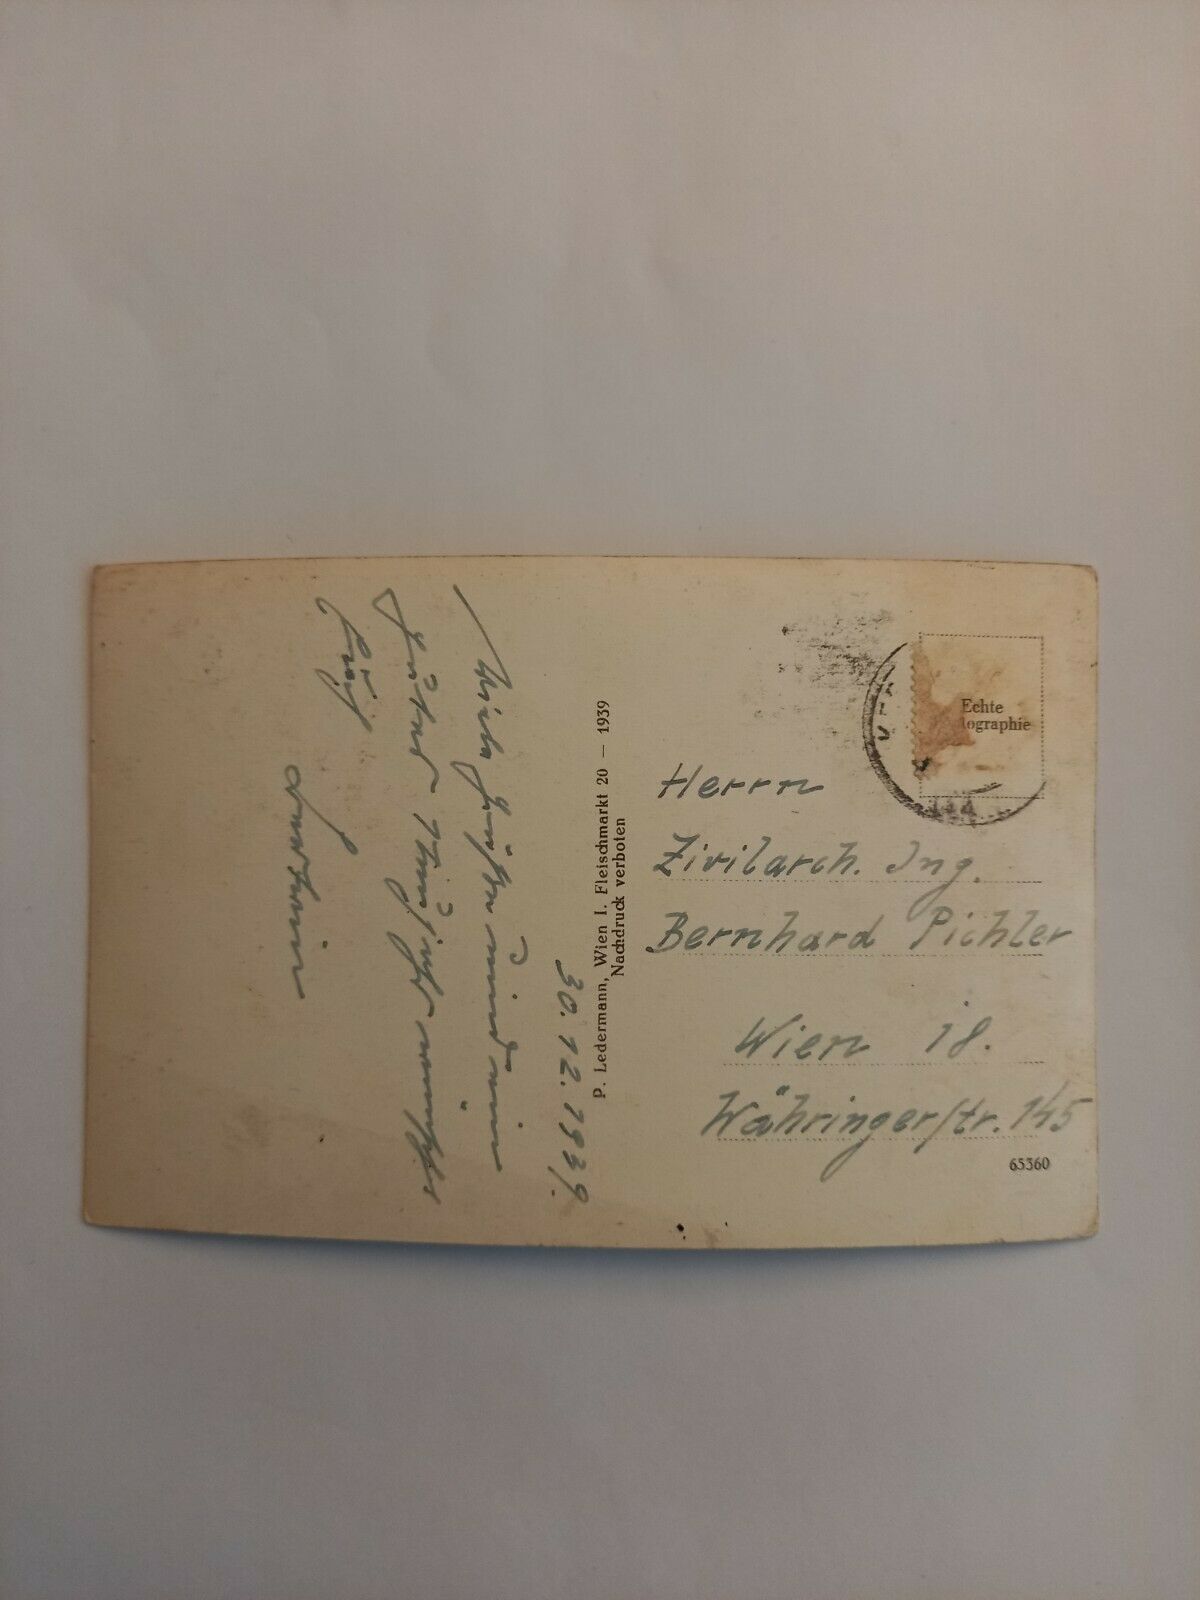 30.12.1939.
Viele Grüße und ein
Prosit Neujahr wünscht
P. Ledermann, Wien I. Fleischmarkt 20 — 1939
Nachdruck verboten
Echte
lographie
Herrn
Zivilarch. Ing.
Bernhard Pichler
Wien 18.
Währingerstr. 145
65360